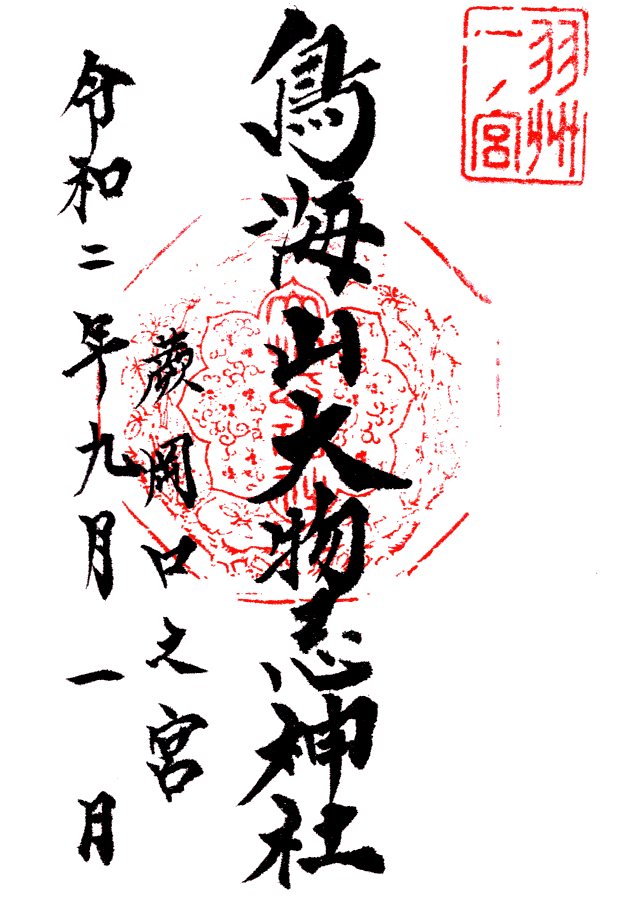 羽州
一ノ宮
鳥海山大物忌神社
蕨岡口之宮
令和二年九月一日